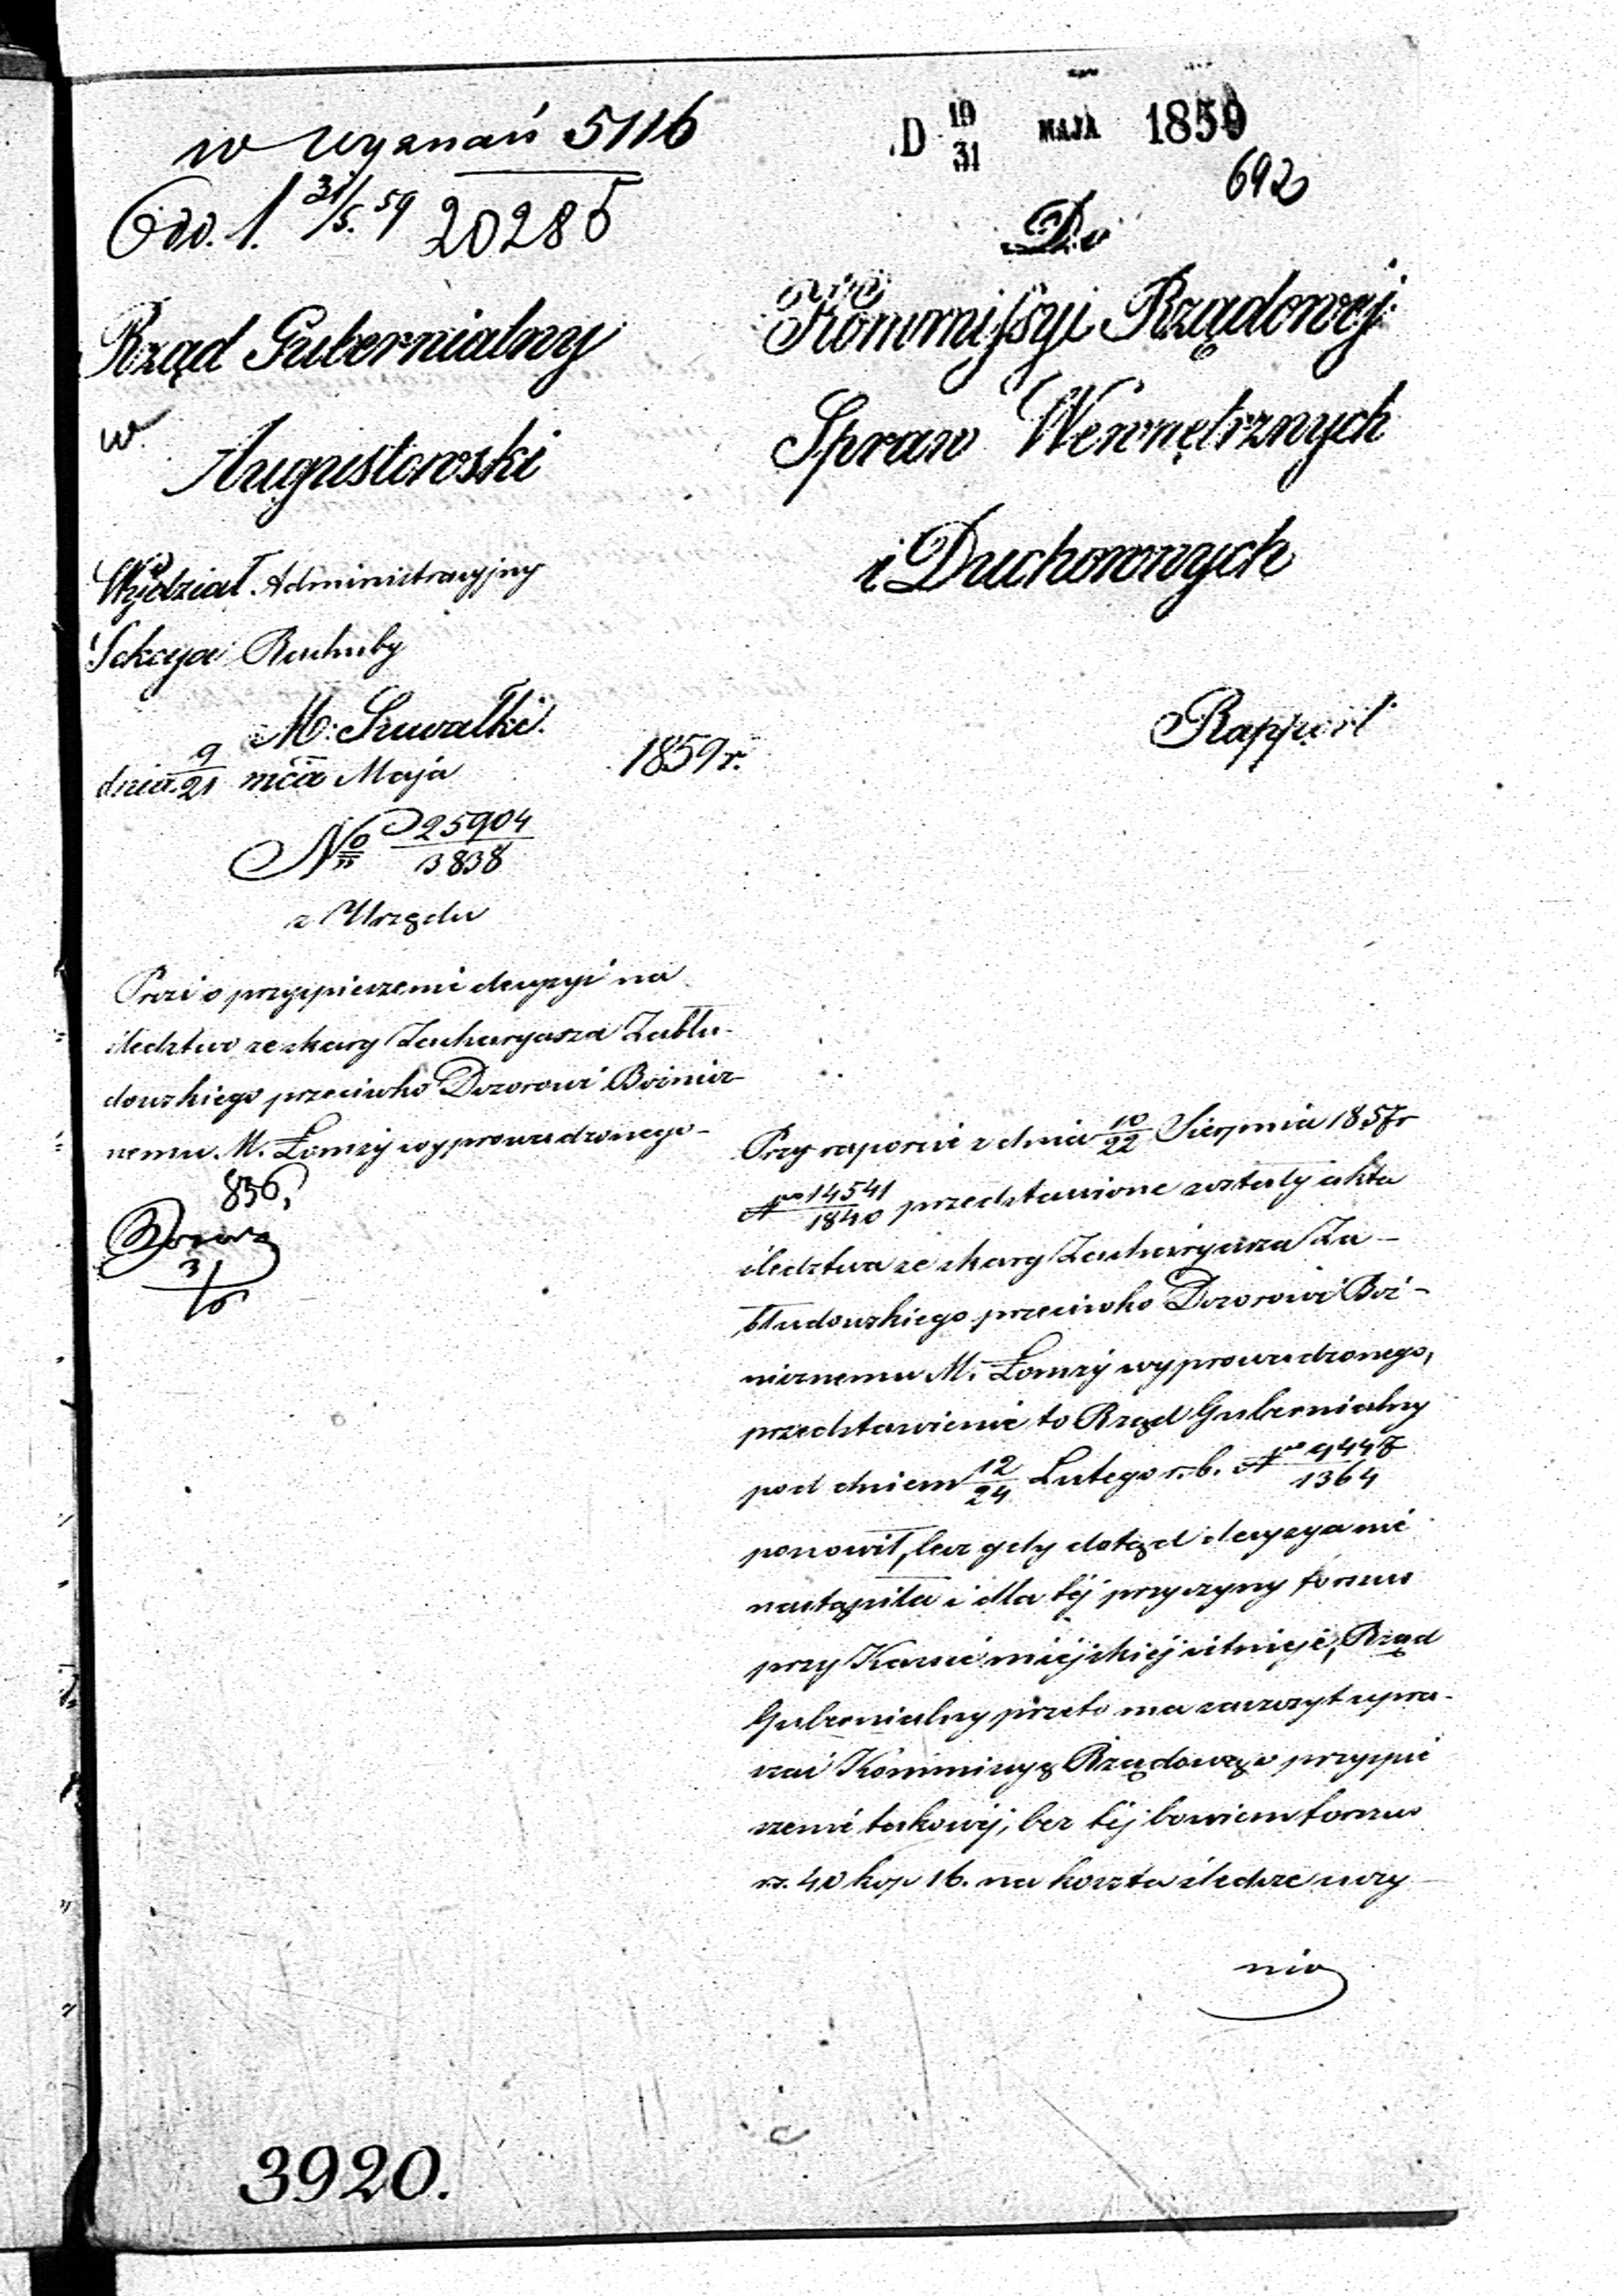 w Wyznań 5116
Odd. 1. 31/5. 59 20285
D 19/31 MAJA 1859
692
Rząd Gubernialny
w
Augustowski
Wydział Administracyjny
Sekcya Rachuby
M. Suwałki
dnia 9/21 mca Maja 1859 r.
No 25904/3838
z Urzędu
Prosi o przyspieszenie decyzyi na
śledztwo ze skargi Zacharyasza Zabłu-
dowskiego przeciwko Dozorowi Bóżnicz-
nemu M. Łomży wyprowadzonego
836
31/5
Do
Kommissyi Rządowej
Spraw Wewnętrznych
i Duchownych
Rapport
Przy raporcie z dnia 10/22 Sierpnia 1857 r
No 14541/1840 przedstawione zostały akta
śledztwa ze skargi Zacharyasza Za-
błudowskiego przeciwko Dozorowi Bóż-
nicznemu M. Łomży wyprowadzonego,
przedstawienie to Rząd Gubernialny
pod dniem 12/24 Lutego r. b. No 9447/1364
ponowił, lecz gdy dotąd decyzya nie
nastąpiła i dla tej przyczyny forszus
przy Kassie miejskiej istnieje, Rząd
Gubernialny przeto ma zaszczyt upra-
szać Kommissyę Rządową o przyspie
szenie takowej, bez tej bowiem forszus
rs. 40 kop 16. na koszta śledcze uczy
nio
3920.